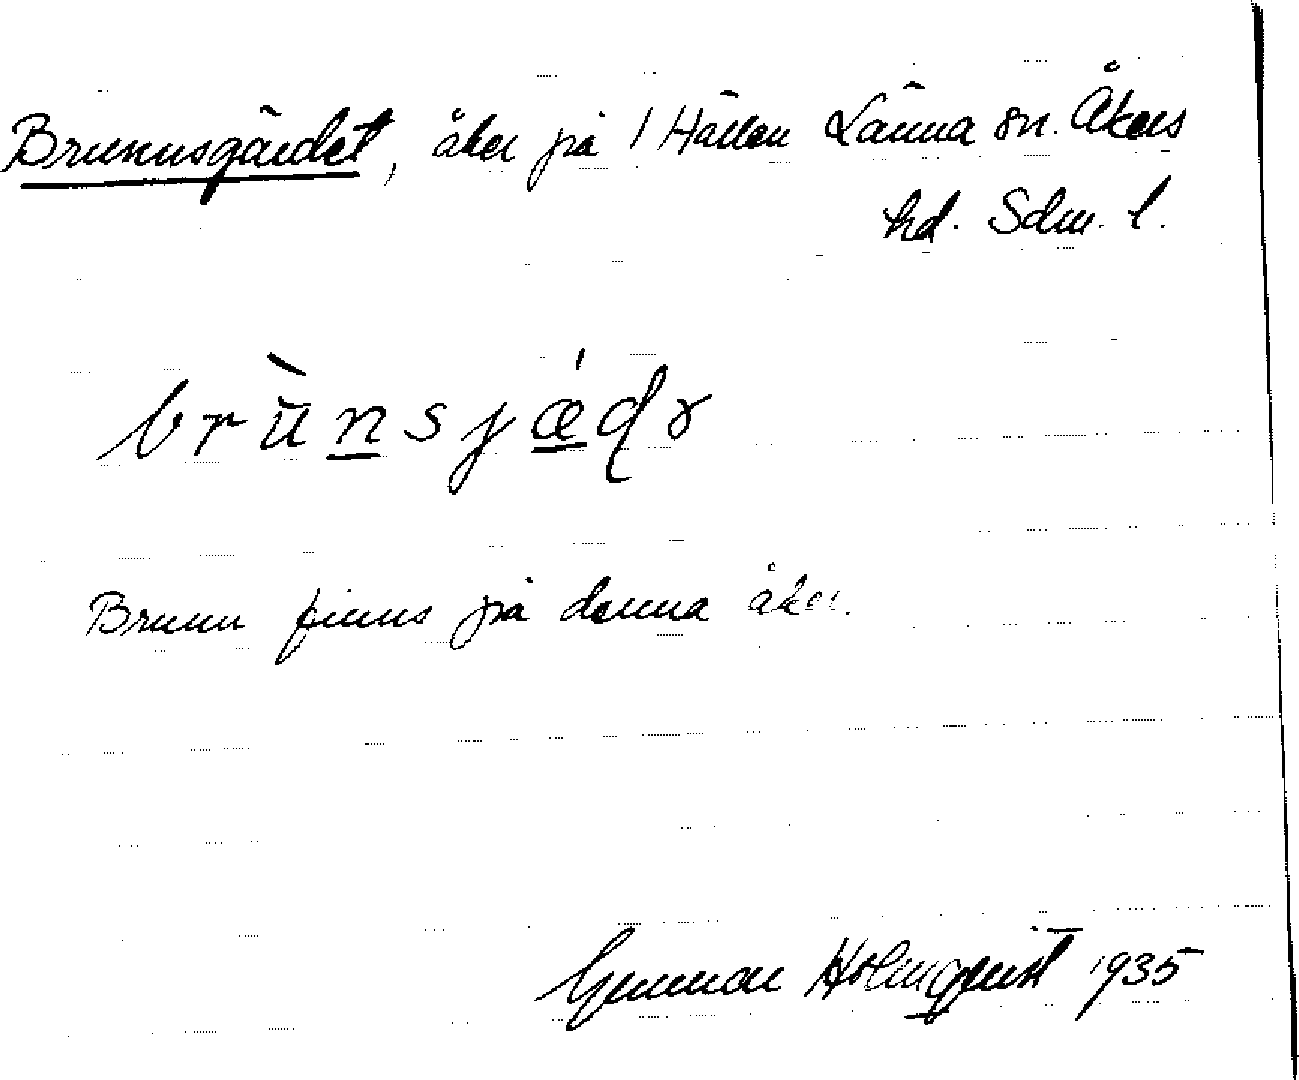 Brunnsgärdet, åker på 1 Hällen Länna sn. Åkers
hd. Sdm. l.
brùnsjǽdɤ
Brunn finns på denna åker.
Gunnar Holmquist 1935